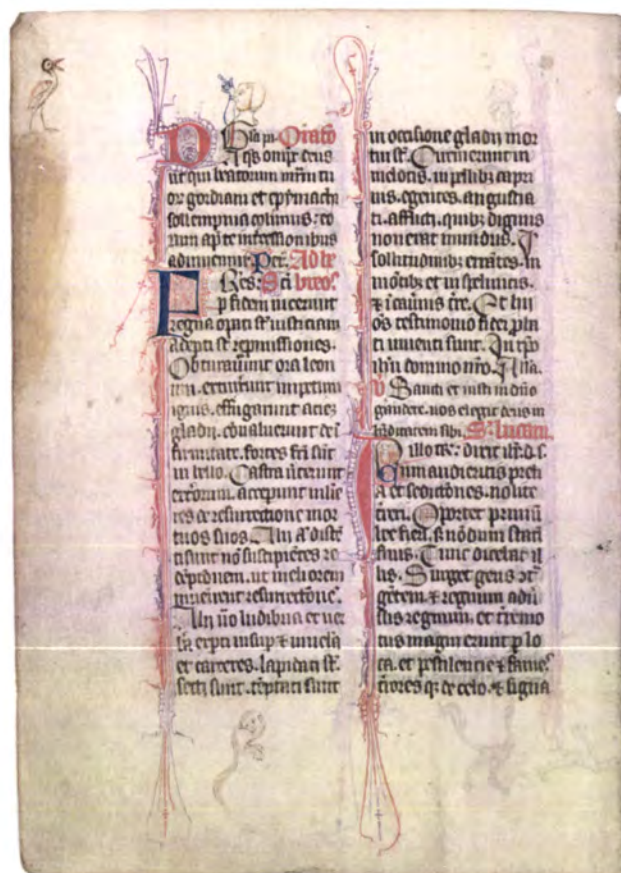 Oratō
A qs omps deus
ut qui beatorum mrm tu
or gordiani et epymachi
sollempnia colimus: eo
rum apte intcessionibus
adiuuemur. Per. Ad he
Res: Sci breos.
P fidem uicerunt
regna opati st iusticiam
adepti st repmissiones.
Obturauerunt ora leon
um. extinxerunt impetum
ignis. effugarunt aciez
gladii. conualuerunt de i
firmitate. fortes fci sūt
in bello. Castra uterunt
exterorum. acceperunt mulie
res de resurrectione mor
tuos suos. Alii
tisunt no suscipietes re
deptionem. ut meliorem
inuenirent resurrectionē.
Alii uo ludibria et uer
ba expti insup & uincla
et carceres. lapidati st.
secti sunt. teptati sunt
in occisione gladii mor
tui st. Circuierunt in
melotis. in pellibz capri
nis. egentes. angustia
ti. afflicti. quibz dignus
non erat mundus. I
sollitudinibz errātes. in
motibz et in speluncis.
& i cauernis tre. Et hii
os testimonio fidei pba
ti inuenti sunt. In xpo
ihu domino nro. Alla.
V Sancti et iusti in dno
gaudete. uos elegit deus in
heditatem sibi. S. lucam.
In illo tr: dixit ihc. d. s.
Cum audieritis preli
a et seditiones. nolite
treri. Oportet primū
hec fieri. s nōdum stati
finis. Tunc dicebat il
lis. Surget gens ot
gētem. & regnum adu
sus regnum. et tremo
tus magni erunt p lo
ca. et pestilencie & fames
trores qz de celo. & signa